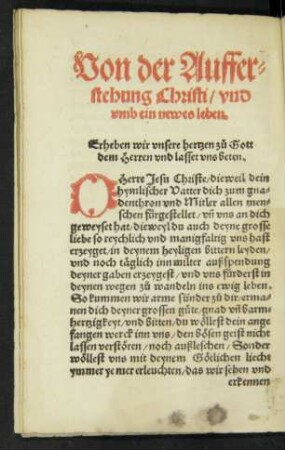 Von der Auffer-
stehung Christi/ vnd
vmb ein newes leben.
Erheben wir vnsere hertzen zů Gott
dem Herren vnd lasset vns beten.
O Herre Jesu Christe/ die weil dein
hymlischer Vatter dich zum gna-
denthron vnd Mitler allen men-
schen fürgestellet/ vň vns an dich
geweyset hat/ dieweyl du auch deyne grosse
liebe so reychlich vnd manigfaltig vns hast
erzeyget/ in deynem heyligen bittern leyden/
vnd noch täglich inn milter außspendung
deyner gaben erzeygest/ vnd vns fürderst in
deynen wegen zů wandeln ins ewig leben.
So kummen wir arme sünder zů dir/ erma-
nen dich deyner grossen güte/ gnad vň barm-
hertzigkeyt/ vnd bitten/ du wöllest dein ange
fangen werck inn vns/ den bösen geist nicht
lassen verstören/ noch außleschen/ Sonder
wöllest vns mit deynem Götlichen liecht
ymmer ye mer erleuchten/ das wir sehen vnd
erkennen